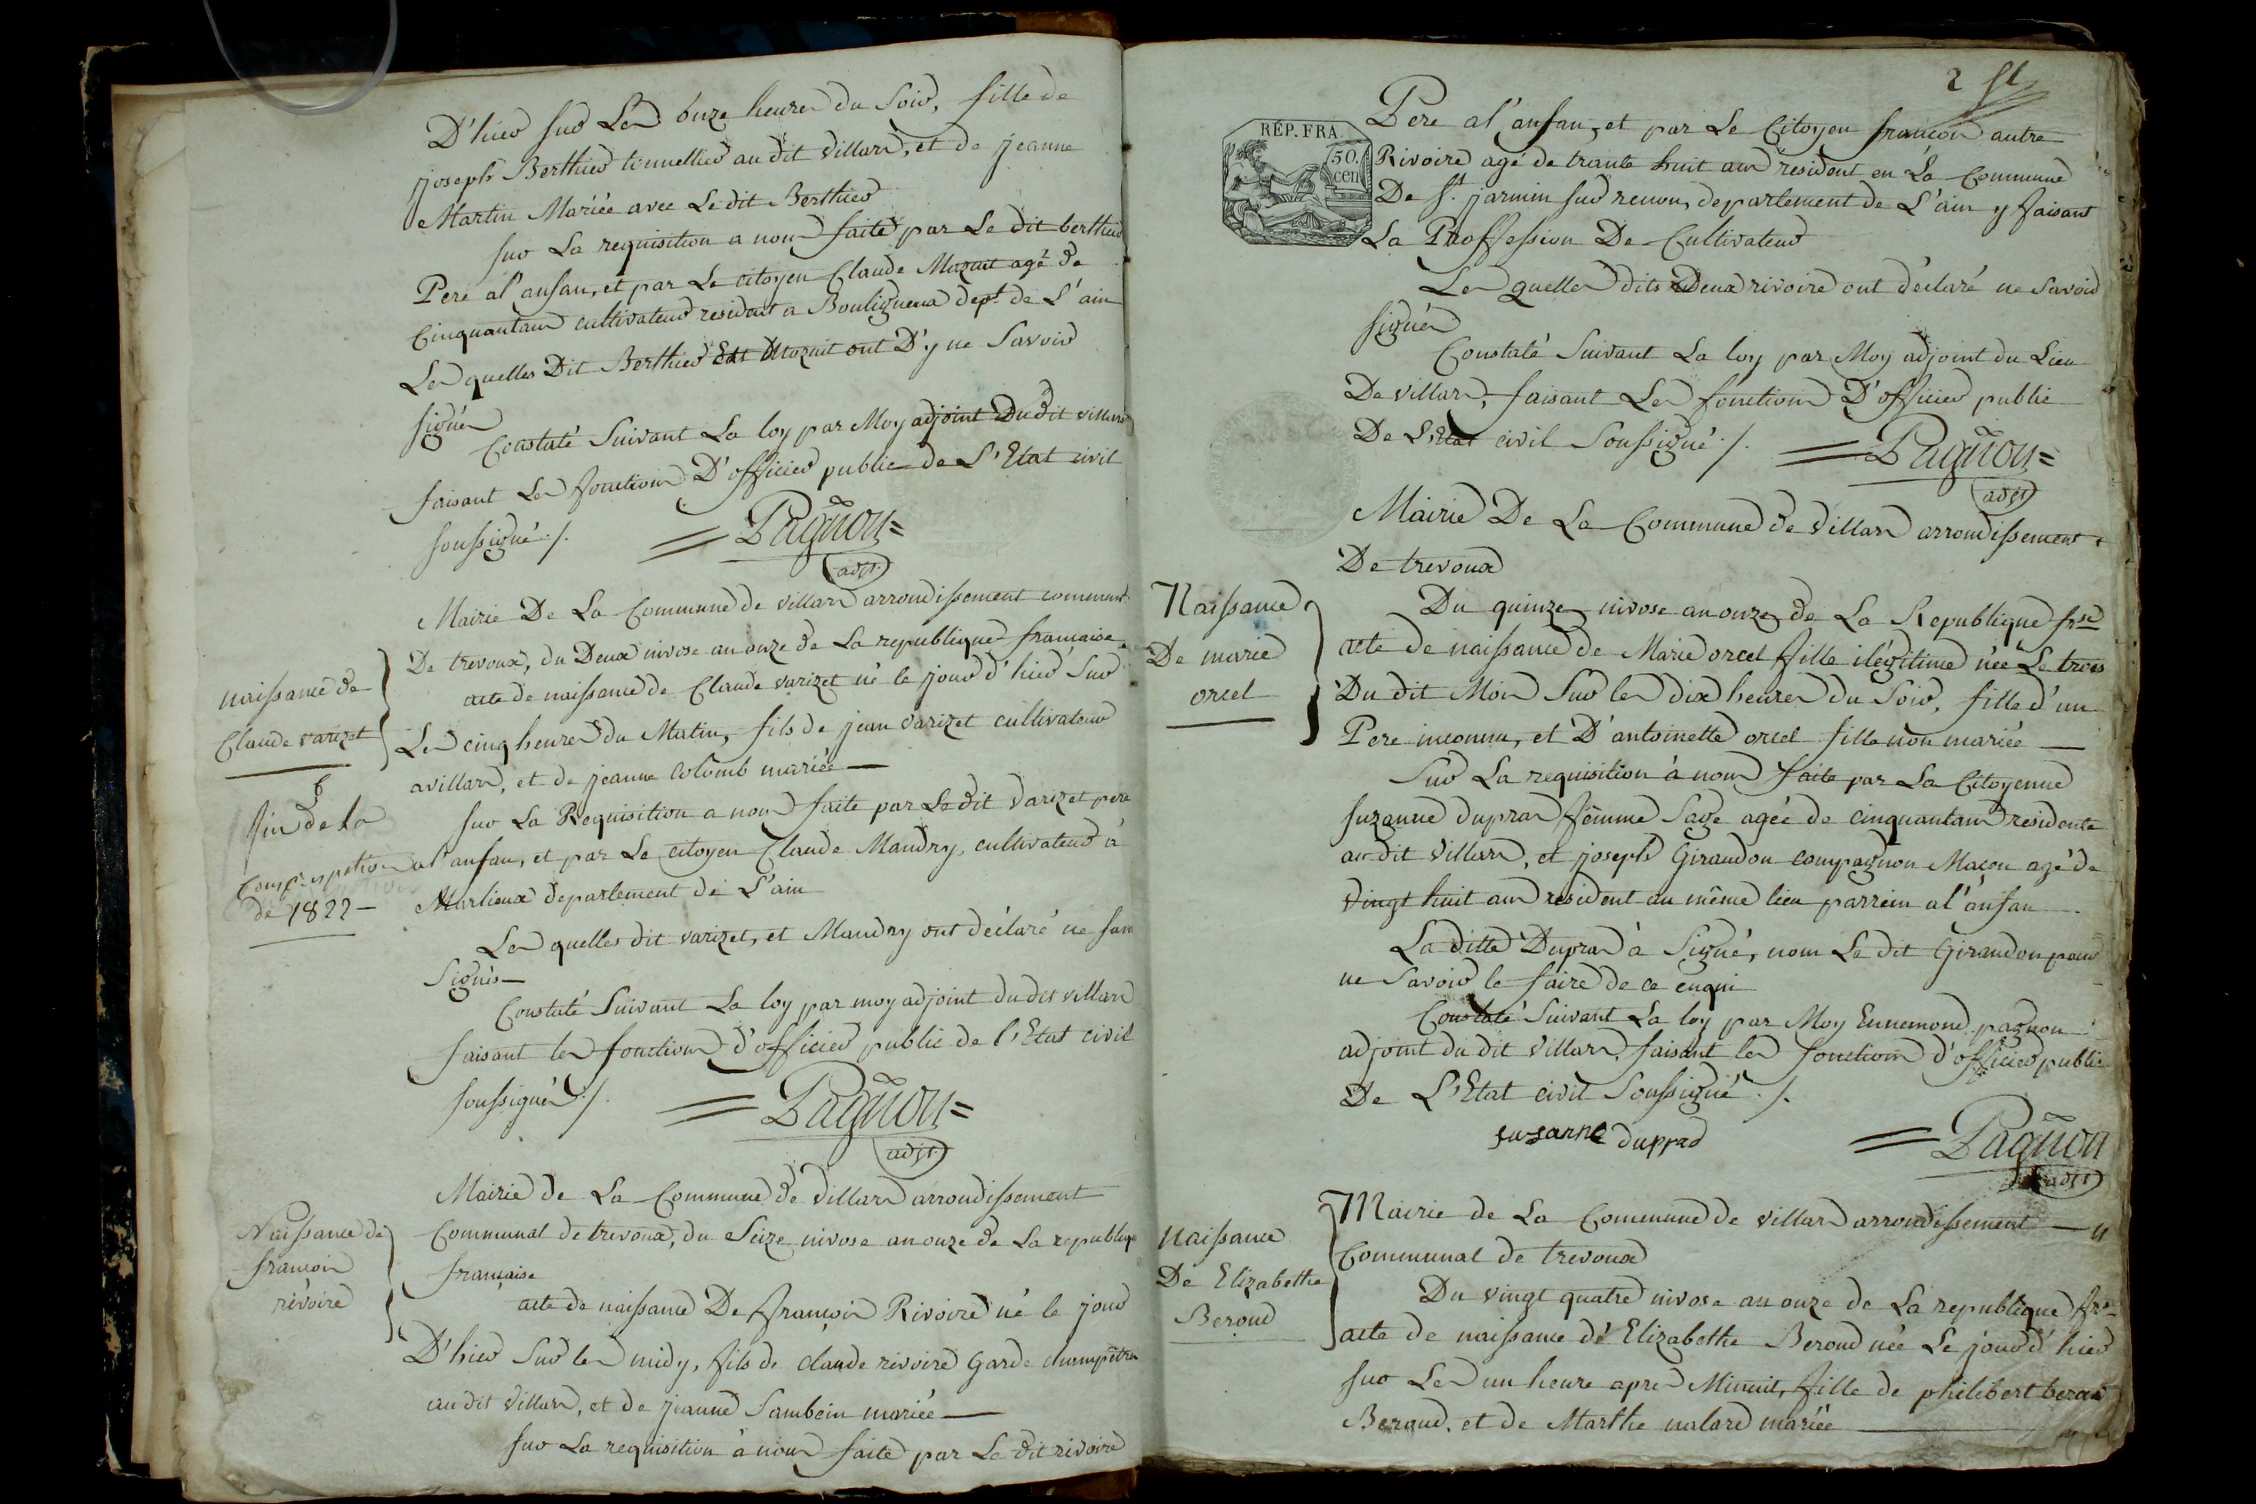 D'hier sur Les onze heures du Soir, fille de
joseph Berthier tonnellier au dit villars, et de jeanne
Martin Mariée avec Le dit Berthier
sur La requisition a nous faite par Le dit berthier
Pere a l'anfan, et par Le citoyen Claude Mazuit agé de
Cinquantans cultivateur resident a Bouligneux dept. de L'ain
Les quelles Dit Berthier Et Mazuit ont D'y ne Savoir
signér
Constaté Suivant La loy par Moy adjoint Du dit villars
faisant Les fonctions D'officier public de L'Etat civil
soussigné ./.
= Pagnon =
adjt.
Mairie De La Commune de villars arrondissement communal
De trevoux, du Deux nivose an onze de La republique francaise
naissance de
Claude varizet
acte de naissance de Claude varizet né le jour d'hier Sur
Les cinq heures du Matin, fils de jean varizet cultivateur
a villars, et de jeanne Colomb mariée —
fin de la
Conscription
de 1822 —
sur La Requisition a nous faite par Le dit varizet pere
a l'anfan, et par Le citoyen Claude Mandry, cultivateur à
Marlieux departement de L'ain
Les quelles dit varizet, et Mandry ont déclaré ne
Signér —
Constaté Suivant La loy par moy adjoint du dit villars
faisant les fonctions d'officier public de l'Etat civil
soussigné ./.
= Pagnon =
adjt.
Mairie de La Commune de villars arrondissement
Communal de trevoux, du Seize nivose an onze de La republique
francaise
Naissance de
francois
rivoire
acte de naissance De francois Rivoire né le jour
D'hier Sur les midy, fils de claude rivoire Garde champêtre
au dit villars, et de jeanne Sambein mariée —
sur La requisition à nous faite par Le dit rivoire
2
RÉP. FRA
50.
cen
Pere a l'anfan, et par Le Citoyen francois autre
Rivoire agé de trante huit ans resident en La Commune
De St. jarmin sur renon, departement de L'ain y faisant
La Proffession De Cultivateur
Les quelles dits Deux rivoire ont déclaré ne Savoir
signér
Constaté Suivant La loy par Moy adjoint du Lieu
De villars, faisant Les fonctions D'officier public
De L'Etat civil Soussigné ./.
= Pagnon =
adjt
Mairie De La Commune de villars arrondissement
De trevoux
Naissance
De marie
orcel
Du quinze nivose an onze de La Republique frse
acte de naissance de Marie orcel fille ilegitime née Le trois
Du dit Mois Sur les dix heures du Soir, fille d'un
Pere inconnu, et D'antoinette orcel fille non mariée —
Sur La requisition à nous faite par La Citoyenne
suzanne dupras fêmme Sage agée de cinquantans residente
au dit villars, et joseph Giraudon compagnon Maçon agé de
vingt huit ans resident au même lieu parrein a l'anfan
La ditte Dupras à Signé, nom Le dit Giraudon pour
ne Savoir le faire de ce enquis
Constaté Suivant La loy par Moy Ennemond pagnon
adjoint du dit villars, faisant les fonctions d'officier public
De L'Etat civil Soussigné ./.
susanne duppra
= Pagnon
adjt
Mairie de La Commune de villars arrondissement —
Communal de trevoux
Naissance
De Elizabethe
Beroud
Du vingt quatre nivose an onze de La republique fse
acte de naissance de Elizabethe Beroud née Le jour d'hier
sur Les un heure apres Minuit, fille de philibert
Beraud, et de Marthe nalard mariée —